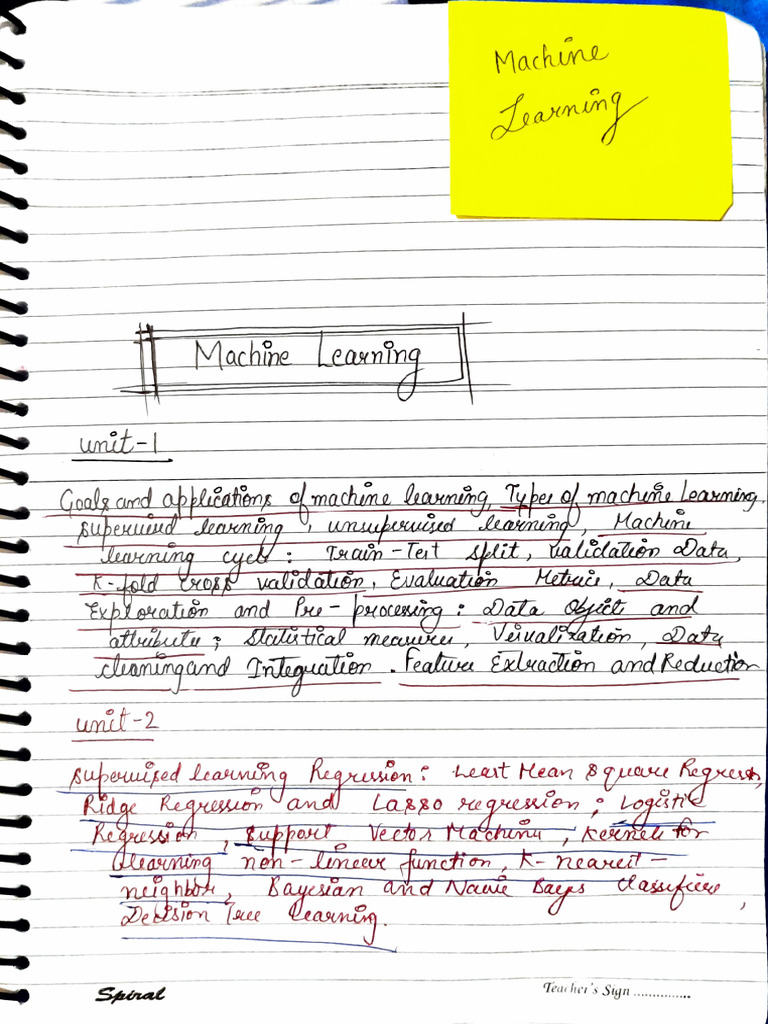 Machine
Learning
Machine Learning
unit-1
Goals and applications of machine learning, Types of machine Learning.
Supervised learning, unsupervised learning, Machine
learning cycle : Train-Test split, Validation Data,
K-fold Cross validation, Evaluation Metrics, Data
Exploration and Pre-processing : Data Objects and
attributes ; Statistical measures, Visualization, Data
cleaning and Integration . Feature Extraction and Reduction
unit-2
Supervised learning Regression : Least Mean Square Regress,
Ridge Regression and Lasso regression ; Logistic
Regression, Support Vector Machine, Kernels for
learning non-linear function, K-nearest-
neighbor, Bayesian and Naive Bayes Classifiers,
Decision Tree Learning.
Spiral
Teacher's Sign ...............